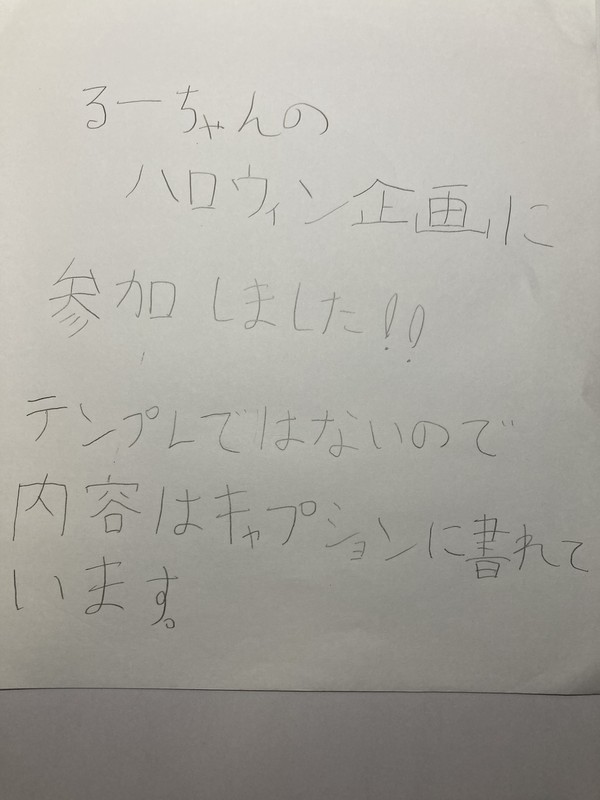 るーちゃんの
ハロウィン企画に
参加しました!!
テンプレではないので
内容はキャプションに書れて
います。